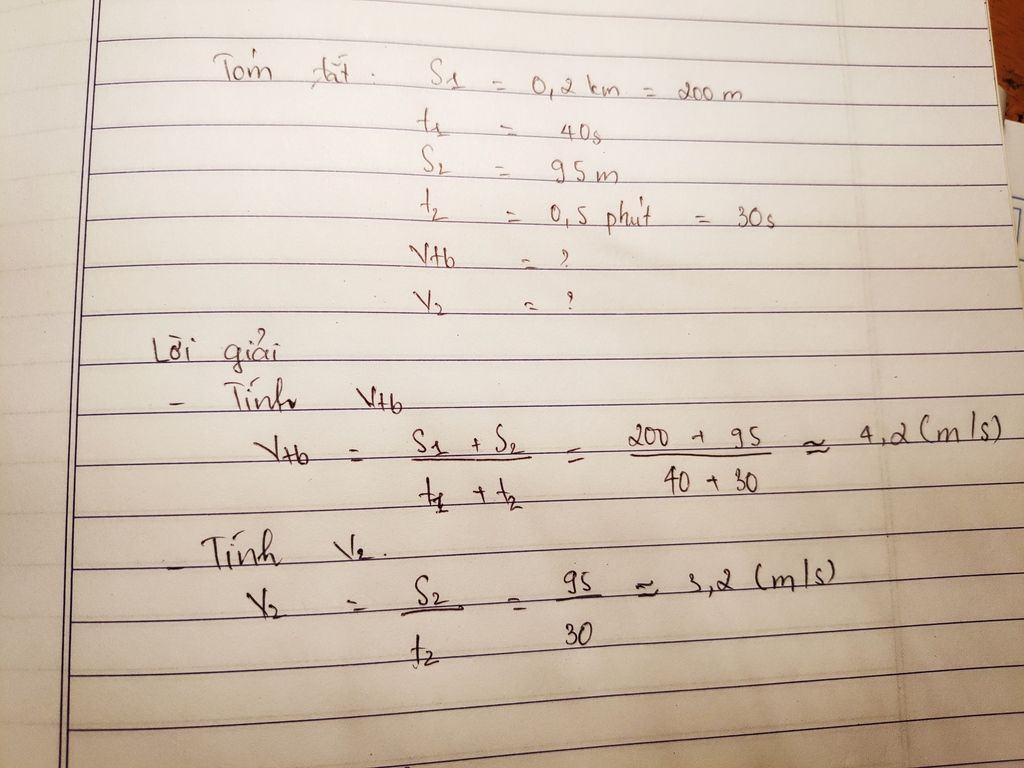 Tóm tắt : S1 = 0,2 km = 200 m
t1 = 40s
S2 = 95 m
t2 = 0,5 phút = 30s
Vtb = ?
V2 = ?
Lời giải
- Tính Vtb
Vtb = (S1 + S2) / (t1 + t2) = (200 + 95) / (40 + 30) ≈ 4,2 (m/s)
- Tính V2.
V2 = S2 / t2 = 95 / 30 ≈ 3,2 (m/s)